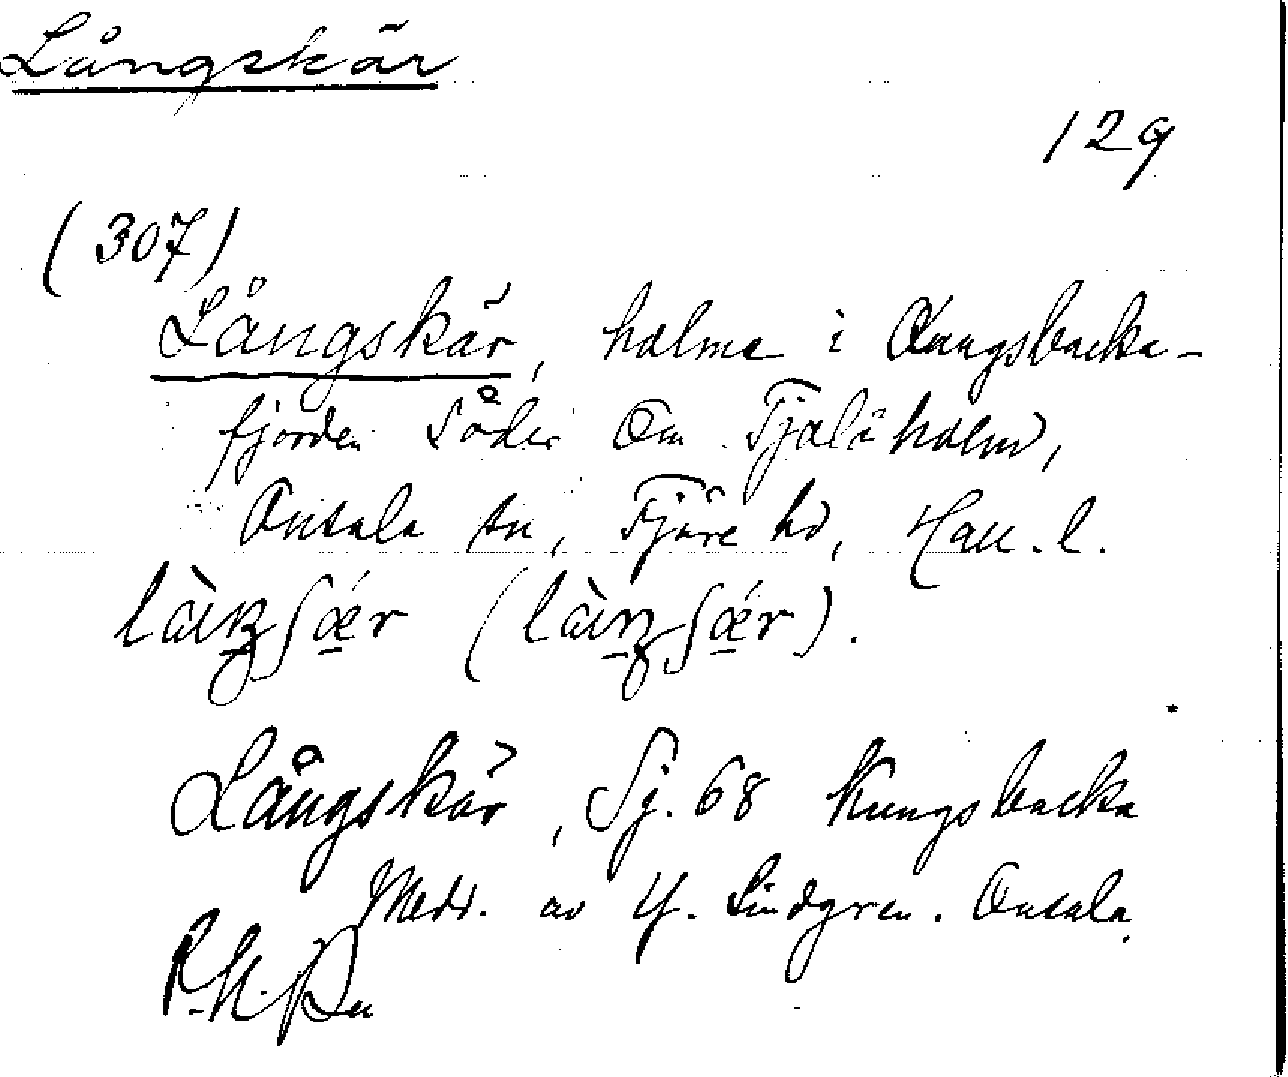 Långskär
129
(307)
Långskär, holme i Kungsbacka-
fjorden Söder Om Tjolöholm,
Onsala sn, Fjäre hd, Hall. l.
Långskär, Sj. 68 Kungsbacka
Medd. av Lindgren. Onsala.